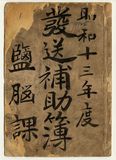 昭和十三年度
發送補助簿
鹽腦課